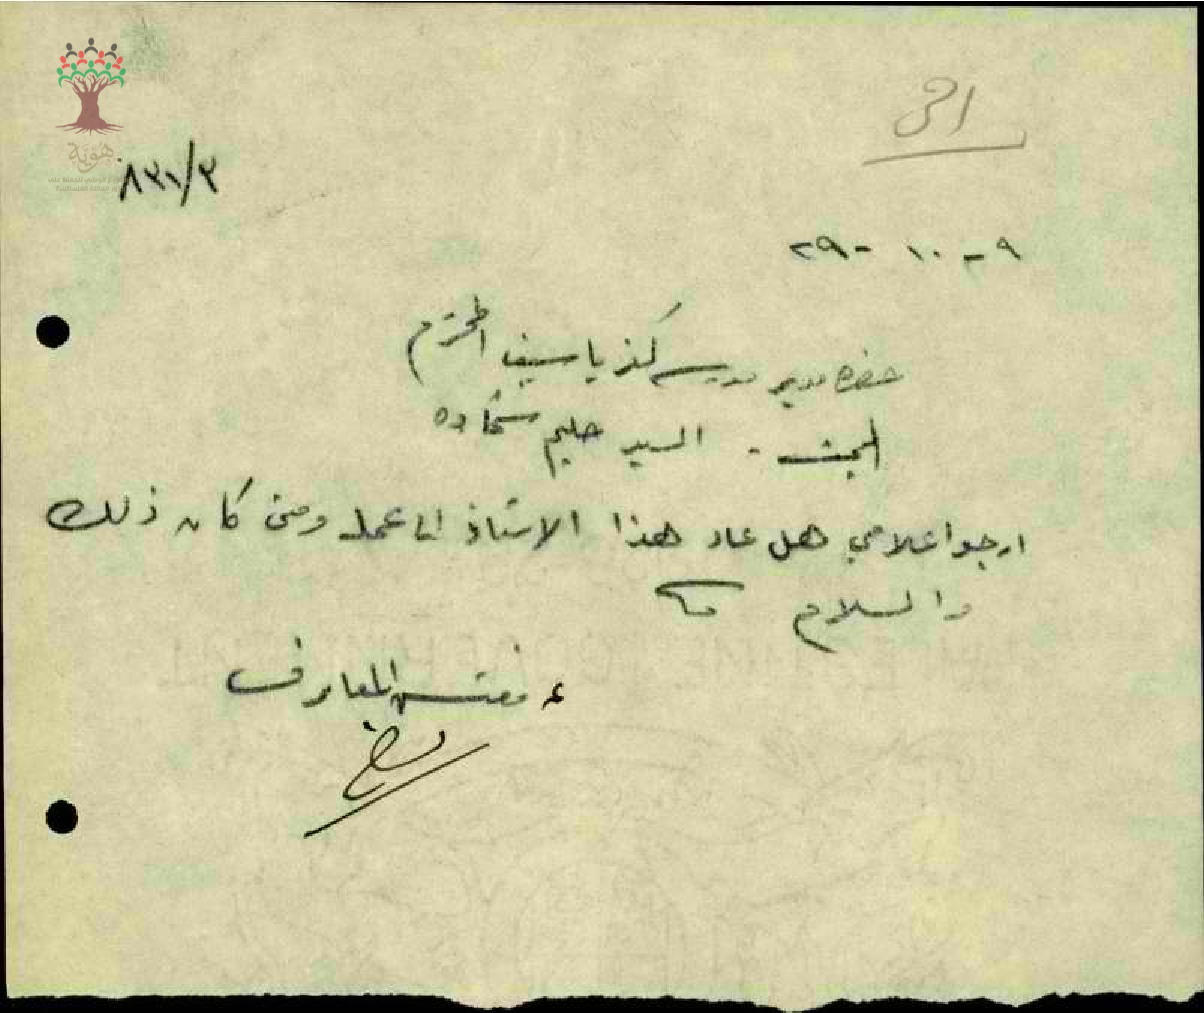 هوية
٨٣١/٣
٩ - ١٠ - ٢٩
حضرة مدير مدرسة كفر ياسيف المحترم
البحث - السيد حليم شحاده
ارجو اعلامي هل عاد هذا الاستاذ الى عمله ومتى كان ذلك
والسلام
ع مفتش المعارف